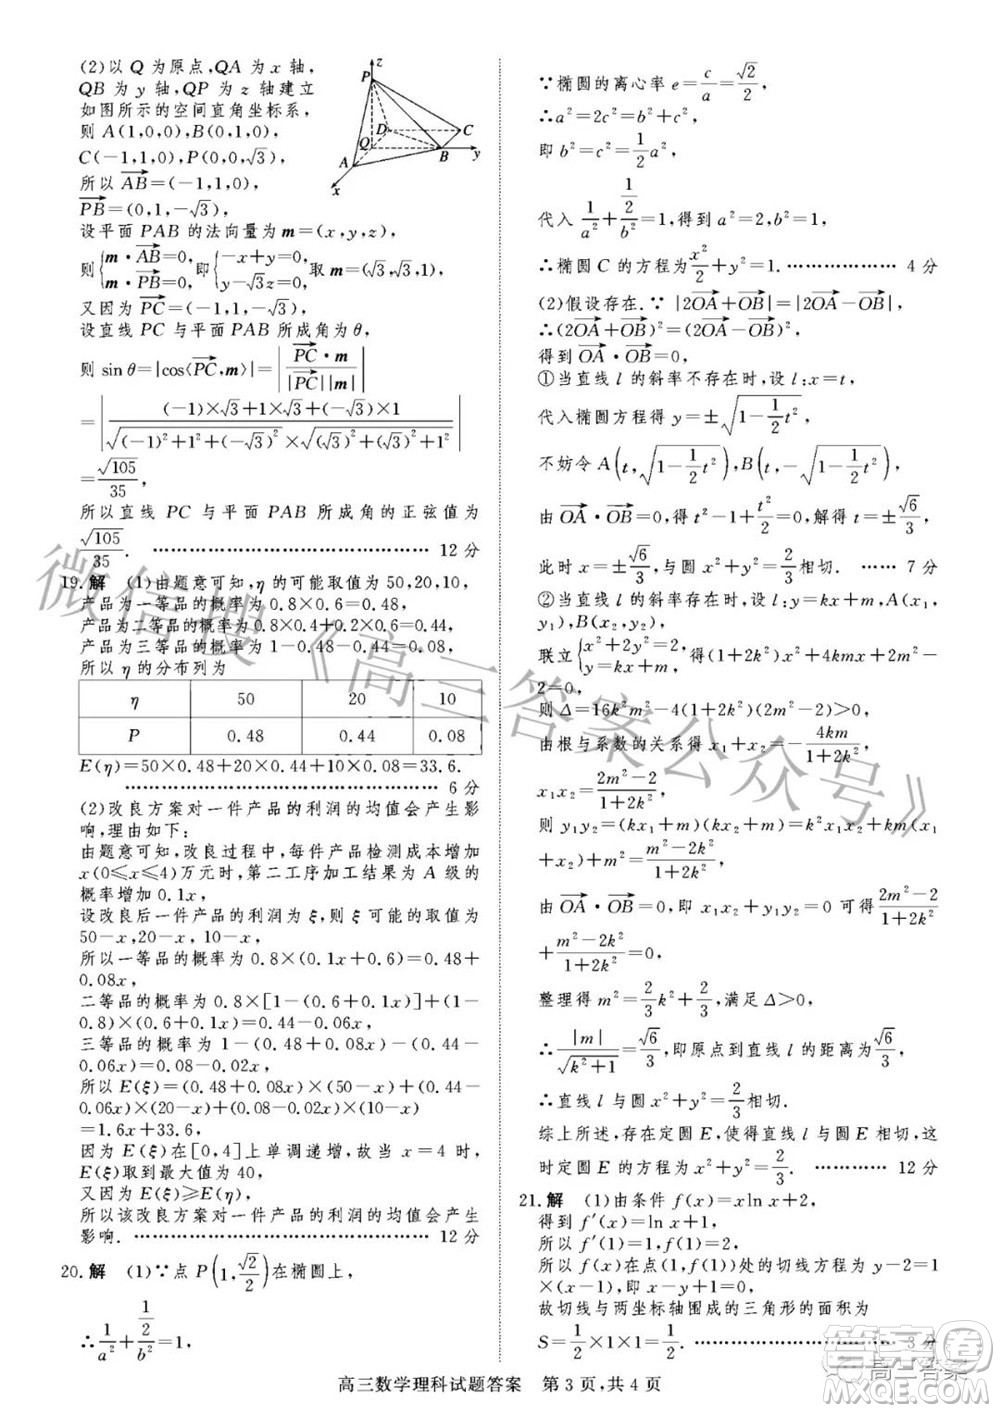 (2)以 Q 为原点,QA 为 x 轴,
QB 为 y 轴,QP 为 z 轴建立
如图所示的空间直角坐标系,
则 A(1,0,0),B(0,1,0),
C(-1,1,0),P(0,0,√3),
所以 AB→=(-1,1,0),
PB→=(0,1,-√3),
z
P
D
C
Q
A
B
y
x
设平面 PAB 的法向量为 m=(x,y,z),
则{m·AB→=0, m·PB→=0, 即{-x+y=0, y-√3z=0, 取 m=(√3,√3,1),
又因为 PC→=(-1,1,-√3),
设直线 PC 与平面 PAB 所成角为 θ,
则 sin θ=|cos⟨PC→,m⟩|=|PC→·m / |PC→||m||
=|((-1)×√3+1×√3+(-√3)×1)/(√((-1)²+1²+(-√3)²)×√((√3)²+(√3)²+1²))|
=√105/35,
所以直线 PC 与平面 PAB 所成角的正弦值为
√105/35. ………………………… 12 分
19.解 (1)由题意可知,η 的可能取值为 50,20,10,
产品为一等品的概率为 0.8×0.6=0.48,
产品为二等品的概率为 0.8×0.4+0.2×0.6=0.44,
产品为三等品的概率为 1-0.48-0.44=0.08,
所以 η 的分布列为
η 50 20 10
P 0.48 0.44 0.08
E(η)=50×0.48+20×0.44+10×0.08=33.6.
………………………… 6 分
(2)改良方案对一件产品的利润的均值会产生影
响,理由如下:
由题意可知,改良过程中,每件产品检测成本增加
x(0≤x≤4)万元时,第二工序加工结果为 A 级的
概率增加 0.1x,
设改良后一件产品的利润为 ξ,则 ξ 可能的取值为
50-x,20-x, 10-x,
所以一等品的概率为 0.8×(0.1x+0.6)=0.48+
0.08x,
二等品的概率为 0.8×[1-(0.1x+0.6)]+(1-
0.8)×(0.1x+0.6)=0.44-0.06x,
三等品的概率为 1-(0.48+0.08x)-(0.44-
0.06x)=0.08-0.02x,
所以 E(ξ)=(0.48+0.08x)×(50-x)+(0.44-
0.06x)×(20-x)+(0.08-0.02x)×(10-x)
=1.6x+33.6,
因为 E(ξ)在[0,4]上单调递增,故当 x=4 时,
E(ξ)取到最大值为 40,
又因为 E(ξ)≥E(η),
所以该改良方案对一件产品的利润的均值会产生
影响. ………………………… 12 分
20.解 (1)∵点 P(1,√2/2)在椭圆上,
∴1/a²+(1/2)/b²=1,
∵椭圆的离心率 e=c/a=√2/2,
∴a²=2c²=b²+c²,
即 b²=c²=1/2a²,
代入 1/a²+(1/2)/b²=1,得到 a²=2,b²=1,
∴椭圆 C 的方程为x²/2+y²=1. …………… 4 分
(2)假设存在.∵|2OA→+OB→|=|2OA→-OB→|,
∴(2OA→+OB→)²=(2OA→-OB→)²,
得到 OA→·OB→=0,
①当直线 l 的斜率不存在时,设 l:x=t,
代入椭圆方程得 y=±√(1-1/2t²),
不妨令 A(t,√(1-1/2t²)),B(t,-√(1-1/2t²)),
由 OA→·OB→=0,得 t²-1+t²/2=0,解得 t=±√6/3,
此时 x=±√6/3,与 x²+y²=2/3相切. …… 7 分
②当直线 l 的斜率存在时,设 l:y=kx+m,A(x₁,
y₁),B(x₂,y₂),
联立{x²+2y²=2, y=kx+m, 得(1+2k²)x²+4kmx+2m²-
2=0,
则 Δ=16k²m²-4(1+2k²)(2m²-2)>0,
由根与系数的关系得 x₁+x₂=-4km/(1+2k²),
x₁x₂=(2m²-2)/(1+2k²),
则 y₁y₂=(kx₁+m)(kx₂+m)=k²x₁x₂+km(x₁
+x₂)+m²=(m²-2k²)/(1+2k²),
由 OA→·OB→=0,即 x₁x₂+y₁y₂=0 可得(2m²-2)/(1+2k²)
+(m²-2k²)/(1+2k²)=0,
整理得 m²=2/3k²+2/3,满足 Δ>0,
∴|m|/√(k²+1)=√6/3,即原点到直线 l 的距离为√6/3,
∴直线 l 与圆 x²+y²=2/3相切.
综上所述,存在定圆 E,使得直线 l 与圆 E 相切,这
时定圆 E 的方程为 x²+y²=2/3. ………… 12 分
21.解 (1)由条件 f(x)=xln x+2,
得到 f′(x)=ln x+1,
所以 f′(1)=1,f(1)=2,
所以 f(x)在点(1,f(1))处的切线方程为 y-2=1
×(x-1),即 x-y+1=0,
故切线与两坐标轴围成的三角形的面积为
S=1/2×1×1=1/2. ………………………… 3 分
高三数学理科试题答案 第 3 页,共 4 页
微信搜《高三答案公众号》
答案卷
高三答案